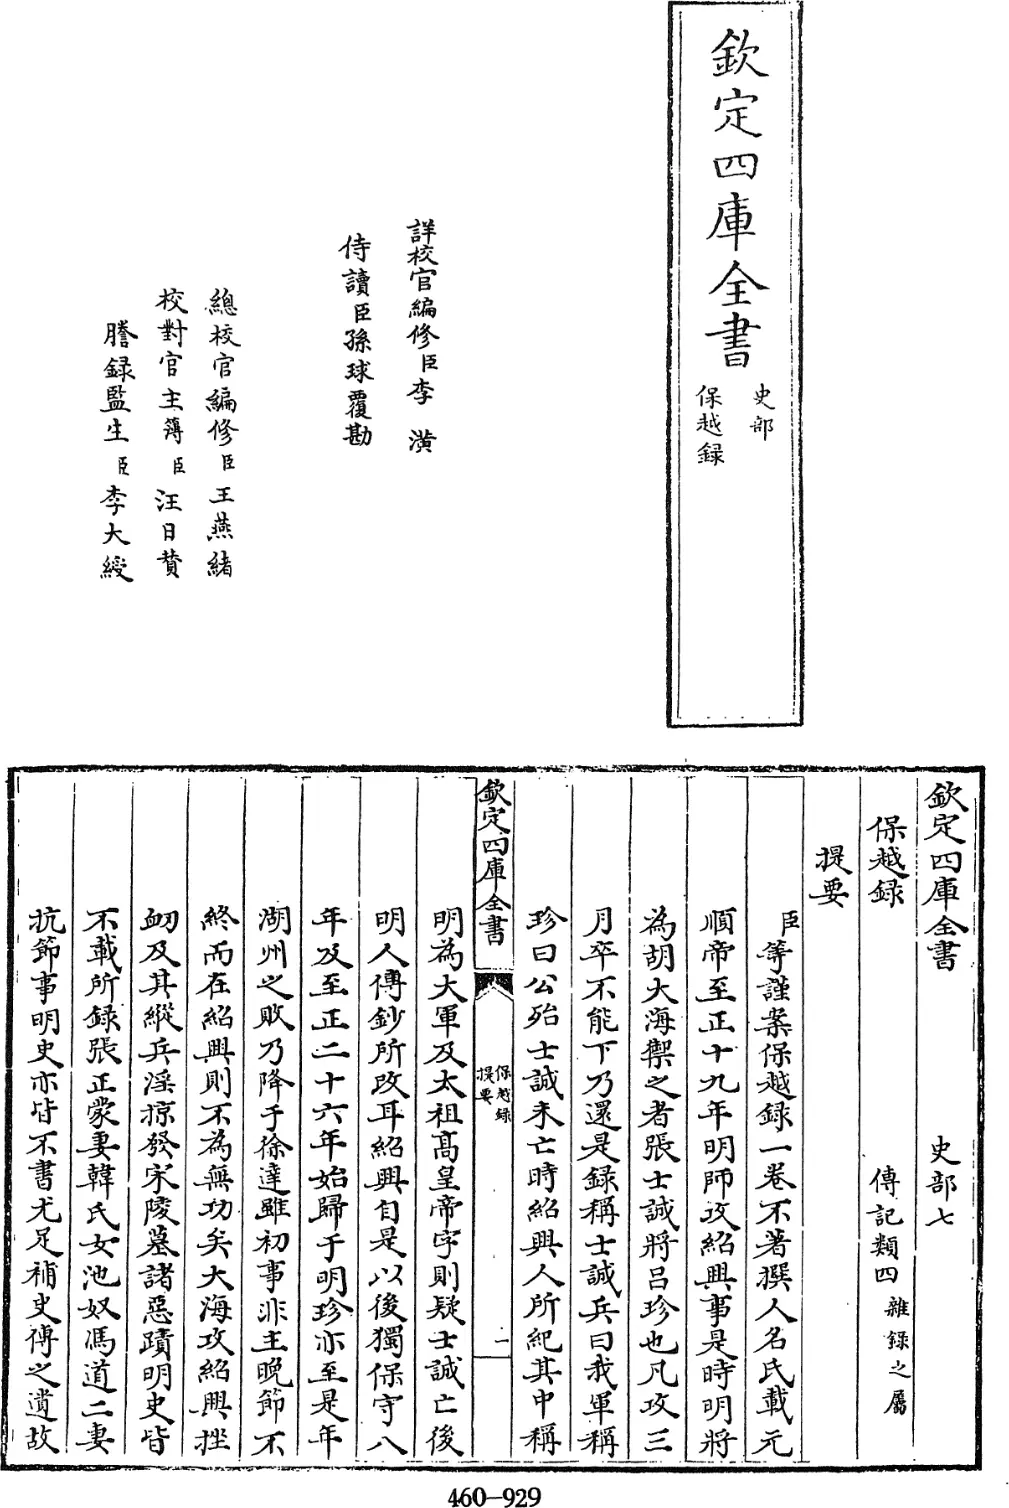 欽定四庫全書
史部
保越録
詳校官編修臣李潢
侍讀臣孫球覆勘
總校官編修臣王燕緒
校對官主簿臣汪日贊
謄録監生臣李大綬
欽定四庫全書 史部七
保越録 傳記類四雜録之屬
提要
臣等謹案保越録一卷不著撰人名氏載元
順帝至正十九年明師攻紹興事是時明將
為胡大海禦之者張士誠將呂珍也凡攻三
月卒不能下乃還是録稱士誠兵曰我軍稱
珍曰公殆士誠未亡時紹興人所紀其中稱
欽定四庫全書
保越録
提要
一
明為大軍及太祖高皇帝字則疑士誠亡後
明人傳鈔所改耳紹興自是以後獨保守八
年及至正二十六年始歸于明珍亦至是年
湖州之敗乃降于徐達雖初事非主晚節不
終而在紹興則不為無功矣大海攻紹興挫
衂及其縱兵淫掠發宋陵墓諸惡蹟明史皆
不載所録張正蒙妻韓氏女池奴馮道二妻
抗節事明史亦皆不書尤足補史傳之遺故
460-929